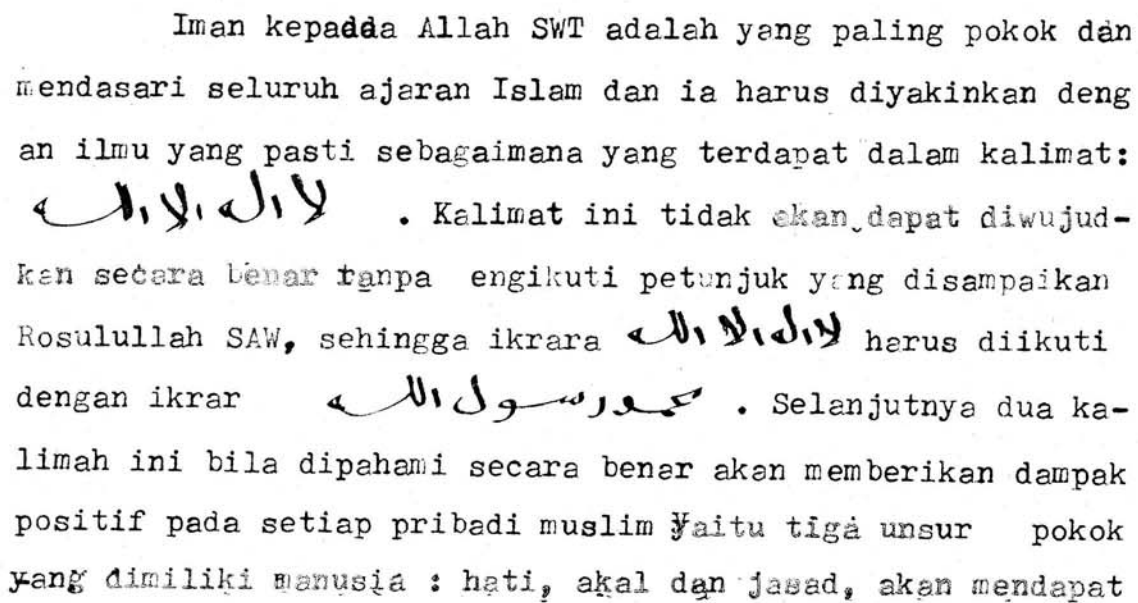 Iman kepadda Allah SWT adalah yang paling pokok dan
mendasari seluruh ajaran Islam dan ia harus diyakinkan deng
an ilmu yang pasti sebagaimana yang terdapat dalam kalimat:
لا اله الا الله . Kalimat ini tidak akan dapat diwujud-
kan secara benar tanpa engikuti petunjuk yang disampaikan
Rosulullah SAW, sehingga ikrara لا اله الا الله harus diikuti
dengan ikrar محمد رسول الله . Selanjutnya dua ka-
limah ini bila dipahami secara benar akan memberikan dampak
positif pada setiap pribadi muslim yaitu tiga unsur pokok
yang dimiliki manusia : hati, akal dan jasad, akan mendapat